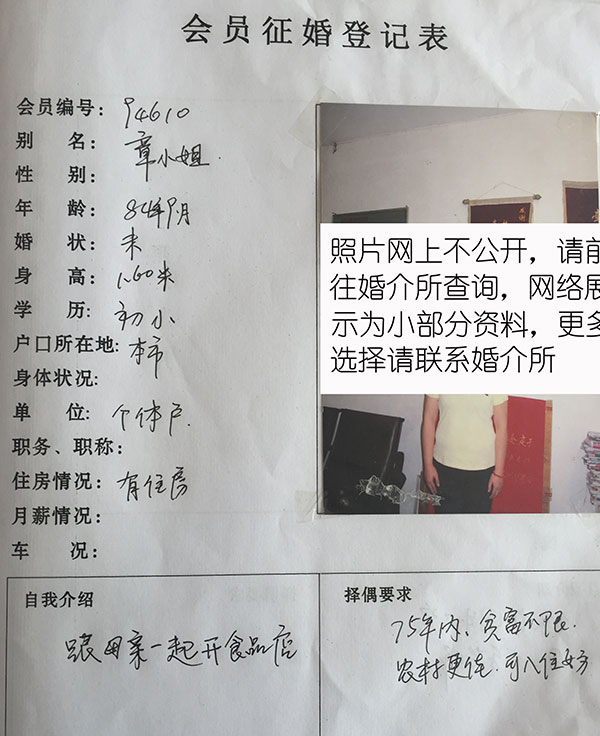 会员征婚登记表
会员编号: 94610
别 名: 章小姐
性 别:
年 龄: 84年9月
婚 状: 未
身 高: 1.60米
学 历: 初小
户口所在地: 本市
身体状况:
单 位: 个体户
职务、职称:
住房情况: 有住房
月薪情况:
车 况:
照片网上不公开，请前
往婚介所查询，网络展
示为小部分资料，更多
选择请联系婚介所
自我介绍
跟母亲一起开食品店
择偶要求
75年内、贫富不限.
农村更佳.可入住女方